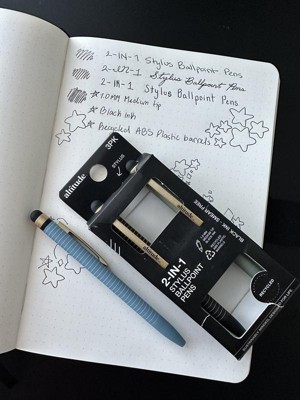 2-IN-1 Stylus Ballpoint Pens
2-IN-1 Stylus Ballpoint Pens
2-IN-1 Stylus Ballpoint Pens
1.0mm Medium tip
Black Ink
Recycled ABS Plastic barrels
3PK
STYLUS
altitude
altitude
altitude
2-IN-1
STYLUS
BALLPOINT
PENS
BLACK INK • SMEAR FREE
RECYCLED